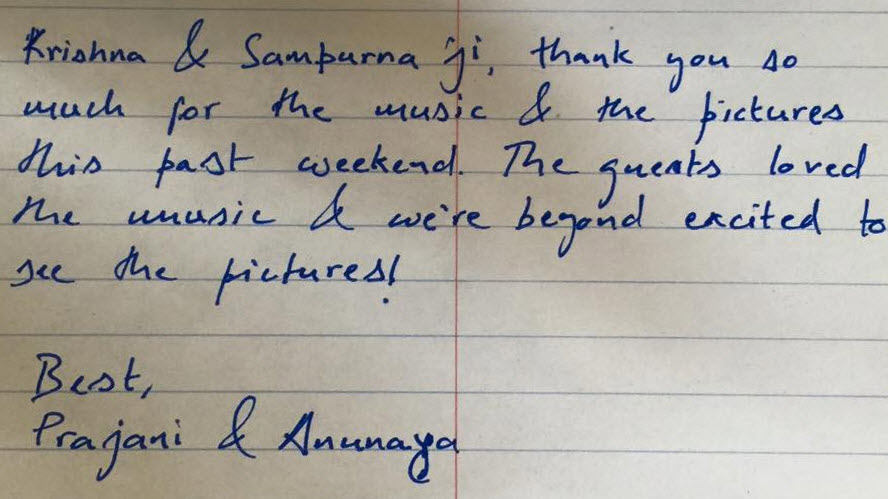 Krishna & Sampurna ji, thank you so
much for the music & the pictures
this past weekend. The guests loved
the music & we're beyond excited to
see the pictures!
Best,
Prajani & Anunaya